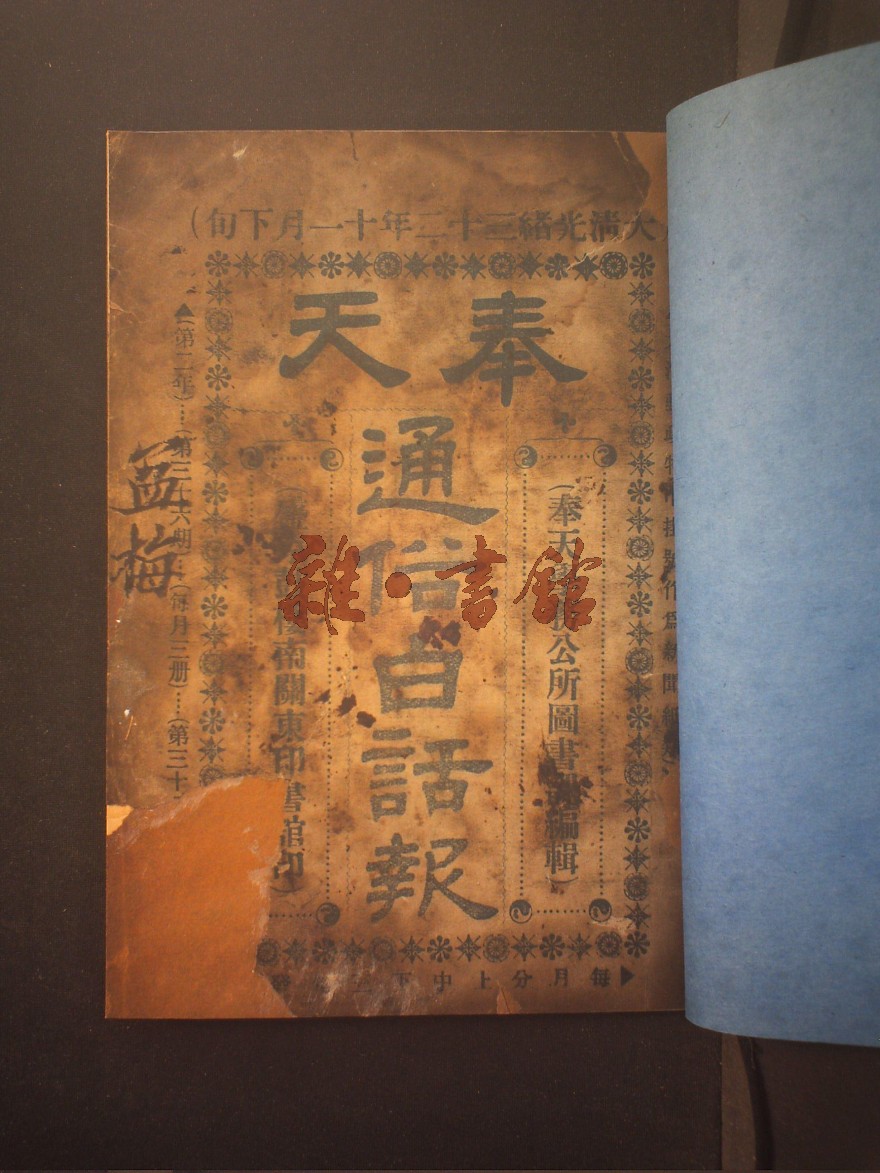 大清光緒三十二年十一月下旬)
奉天
通俗白話報
(奉天公所圖書編輯)
南關東印書館印)
▲(第二年)…(第三十六期)…(每月三册)…(第三十
掛號作爲新聞紙
每月分上中下
孟梅
雜·書館